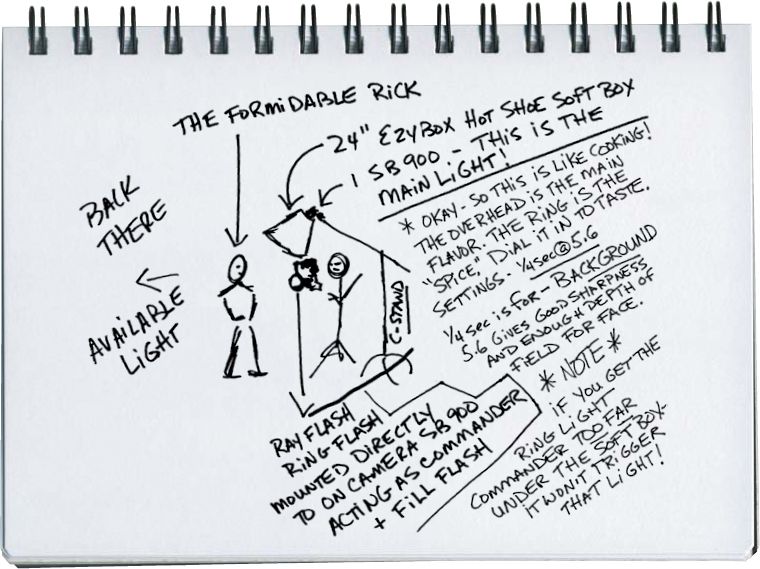 THE FORMIDABLE RICK
24" EZYBOX HOT SHOE SOFTBOX
1 SB900 - THIS IS THE
MAIN LIGHT!
* OKAY - SO THIS IS LIKE COOKING!
THE OVERHEAD IS THE MAIN
FLAVOR. THE RING IS THE
"SPICE," DIAL IT IN TO TASTE.
SETTINGS - 1/4 SEC @ 5.6
1/4 SEC IS FOR - BACKGROUND
5.6 GIVES GOOD SHARPNESS
AND ENOUGH DEPTH OF
FIELD FOR FACE.
* NOTE *
IF YOU GET THE
RING LIGHT
COMMANDER TOO FAR
UNDER THE SOFTBOX-
IT WON'T TRIGGER
THAT LIGHT!
BACK
THERE
AVAILABLE
LIGHT
C-STAND
RAY FLASH
RING FLASH
MOUNTED DIRECTLY
TO ON CAMERA SB900
ACTING AS COMMANDER
+ FILL FLASH